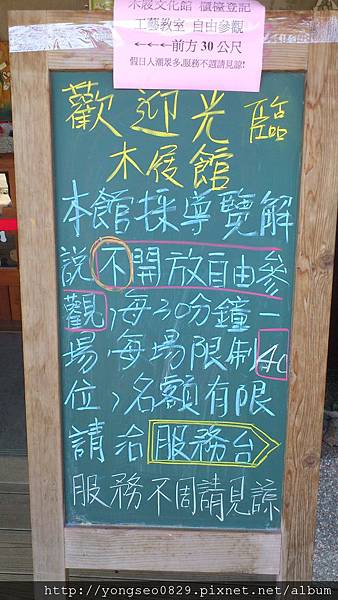 木屐文化館 櫃檯登記
工藝教室 自由參觀
←←←←前方 30 公尺
假日人潮眾多,服務不週請見諒!
歡迎光臨
木屐館
本館採導覽解
說不開放自由參
觀,每30分鐘一
場,每場限制40
位,名額有限
請洽服務台
服務不周請見諒
http://yongseo0829.pixnet.net/album